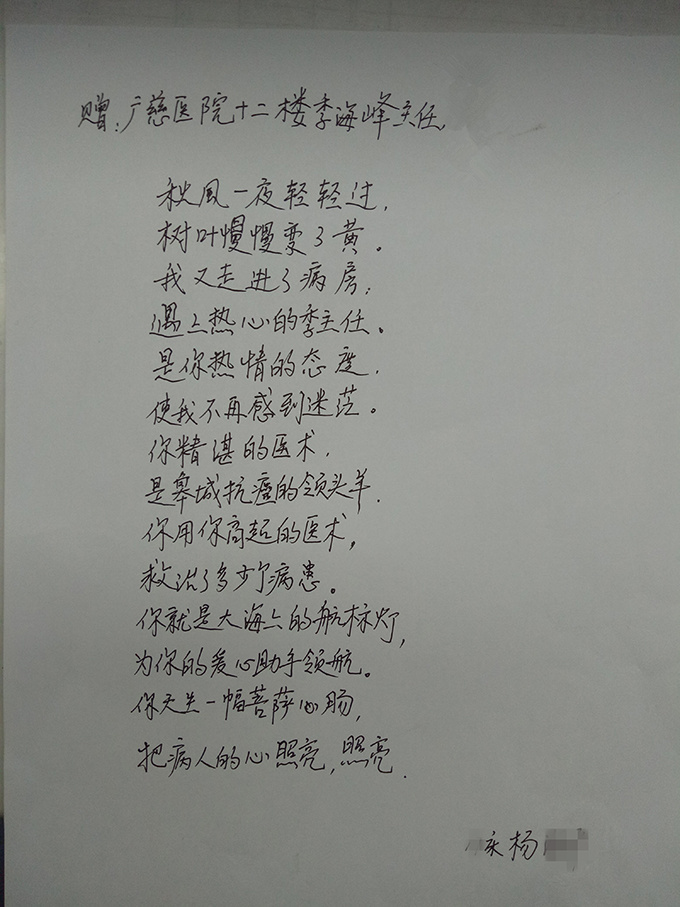 赠:广慈医院十二楼季海峰主任.
秋風一夜轻轻过,
树叶慢慢变了黄。
我又走进了病房,
遇上热心的季主任。
是你热情的态度,
使我不再感到迷茫。
你精湛的医术,
是皋城抗癌的领头羊.
你用你高超的医术,
救治了多少个病患。
你就是大海上的航标灯,
为你的爱心助手领航。
你天生一幅菩萨心肠,
把病人的心照亮,照亮.
杨